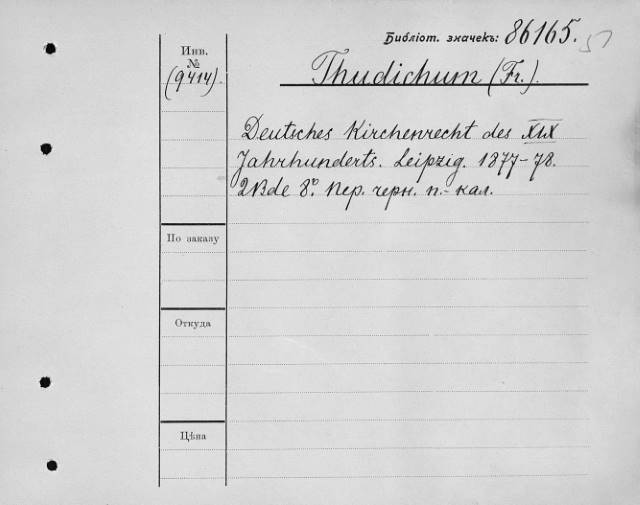 Библіот. значекъ: 86165.
Инв.
№
(9414).
Thudichum (Fr.).
Deutsches Kirchenrecht des XIX
Jahrhunderts. Leipzig. 1877-78.
2 Bde 8°. Пер. черн. п.-кал.
По заказу
Откуда
Цѣна